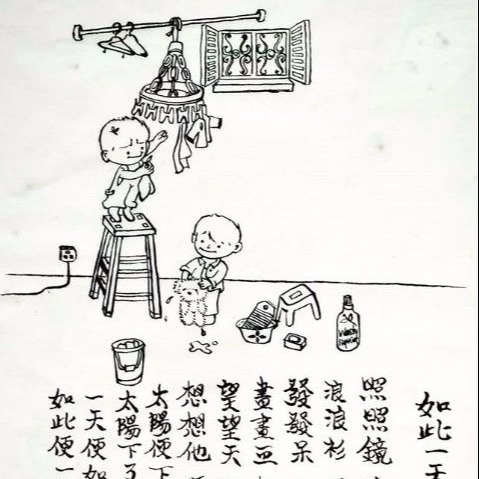 如此一天
照照鏡
浪浪衫
發發呆
畫畫
望望天
想想他
太陽便下
太陽下了
一天便如
如此便一